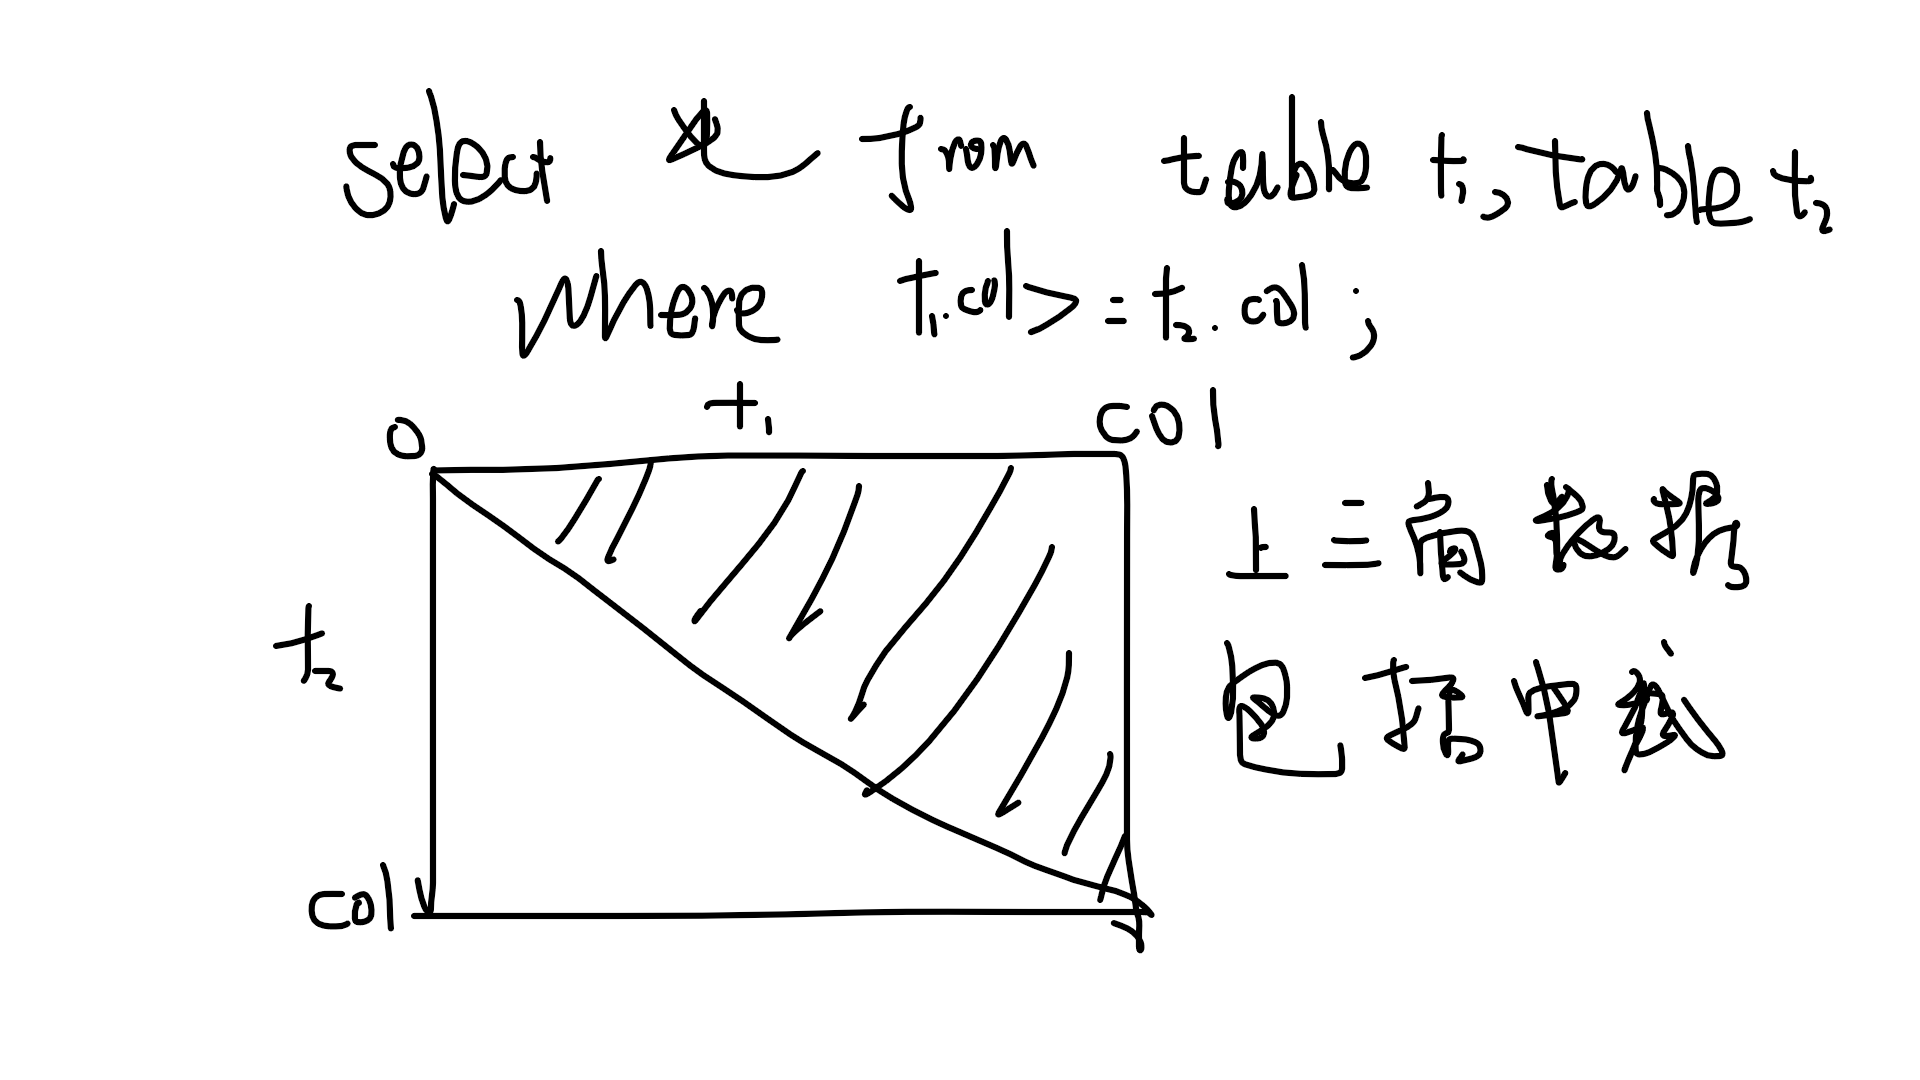 select * from table t1, table t2
where t1.col >= t2.col ;
0 t1 col
上三角数据
t2
包括中线
col